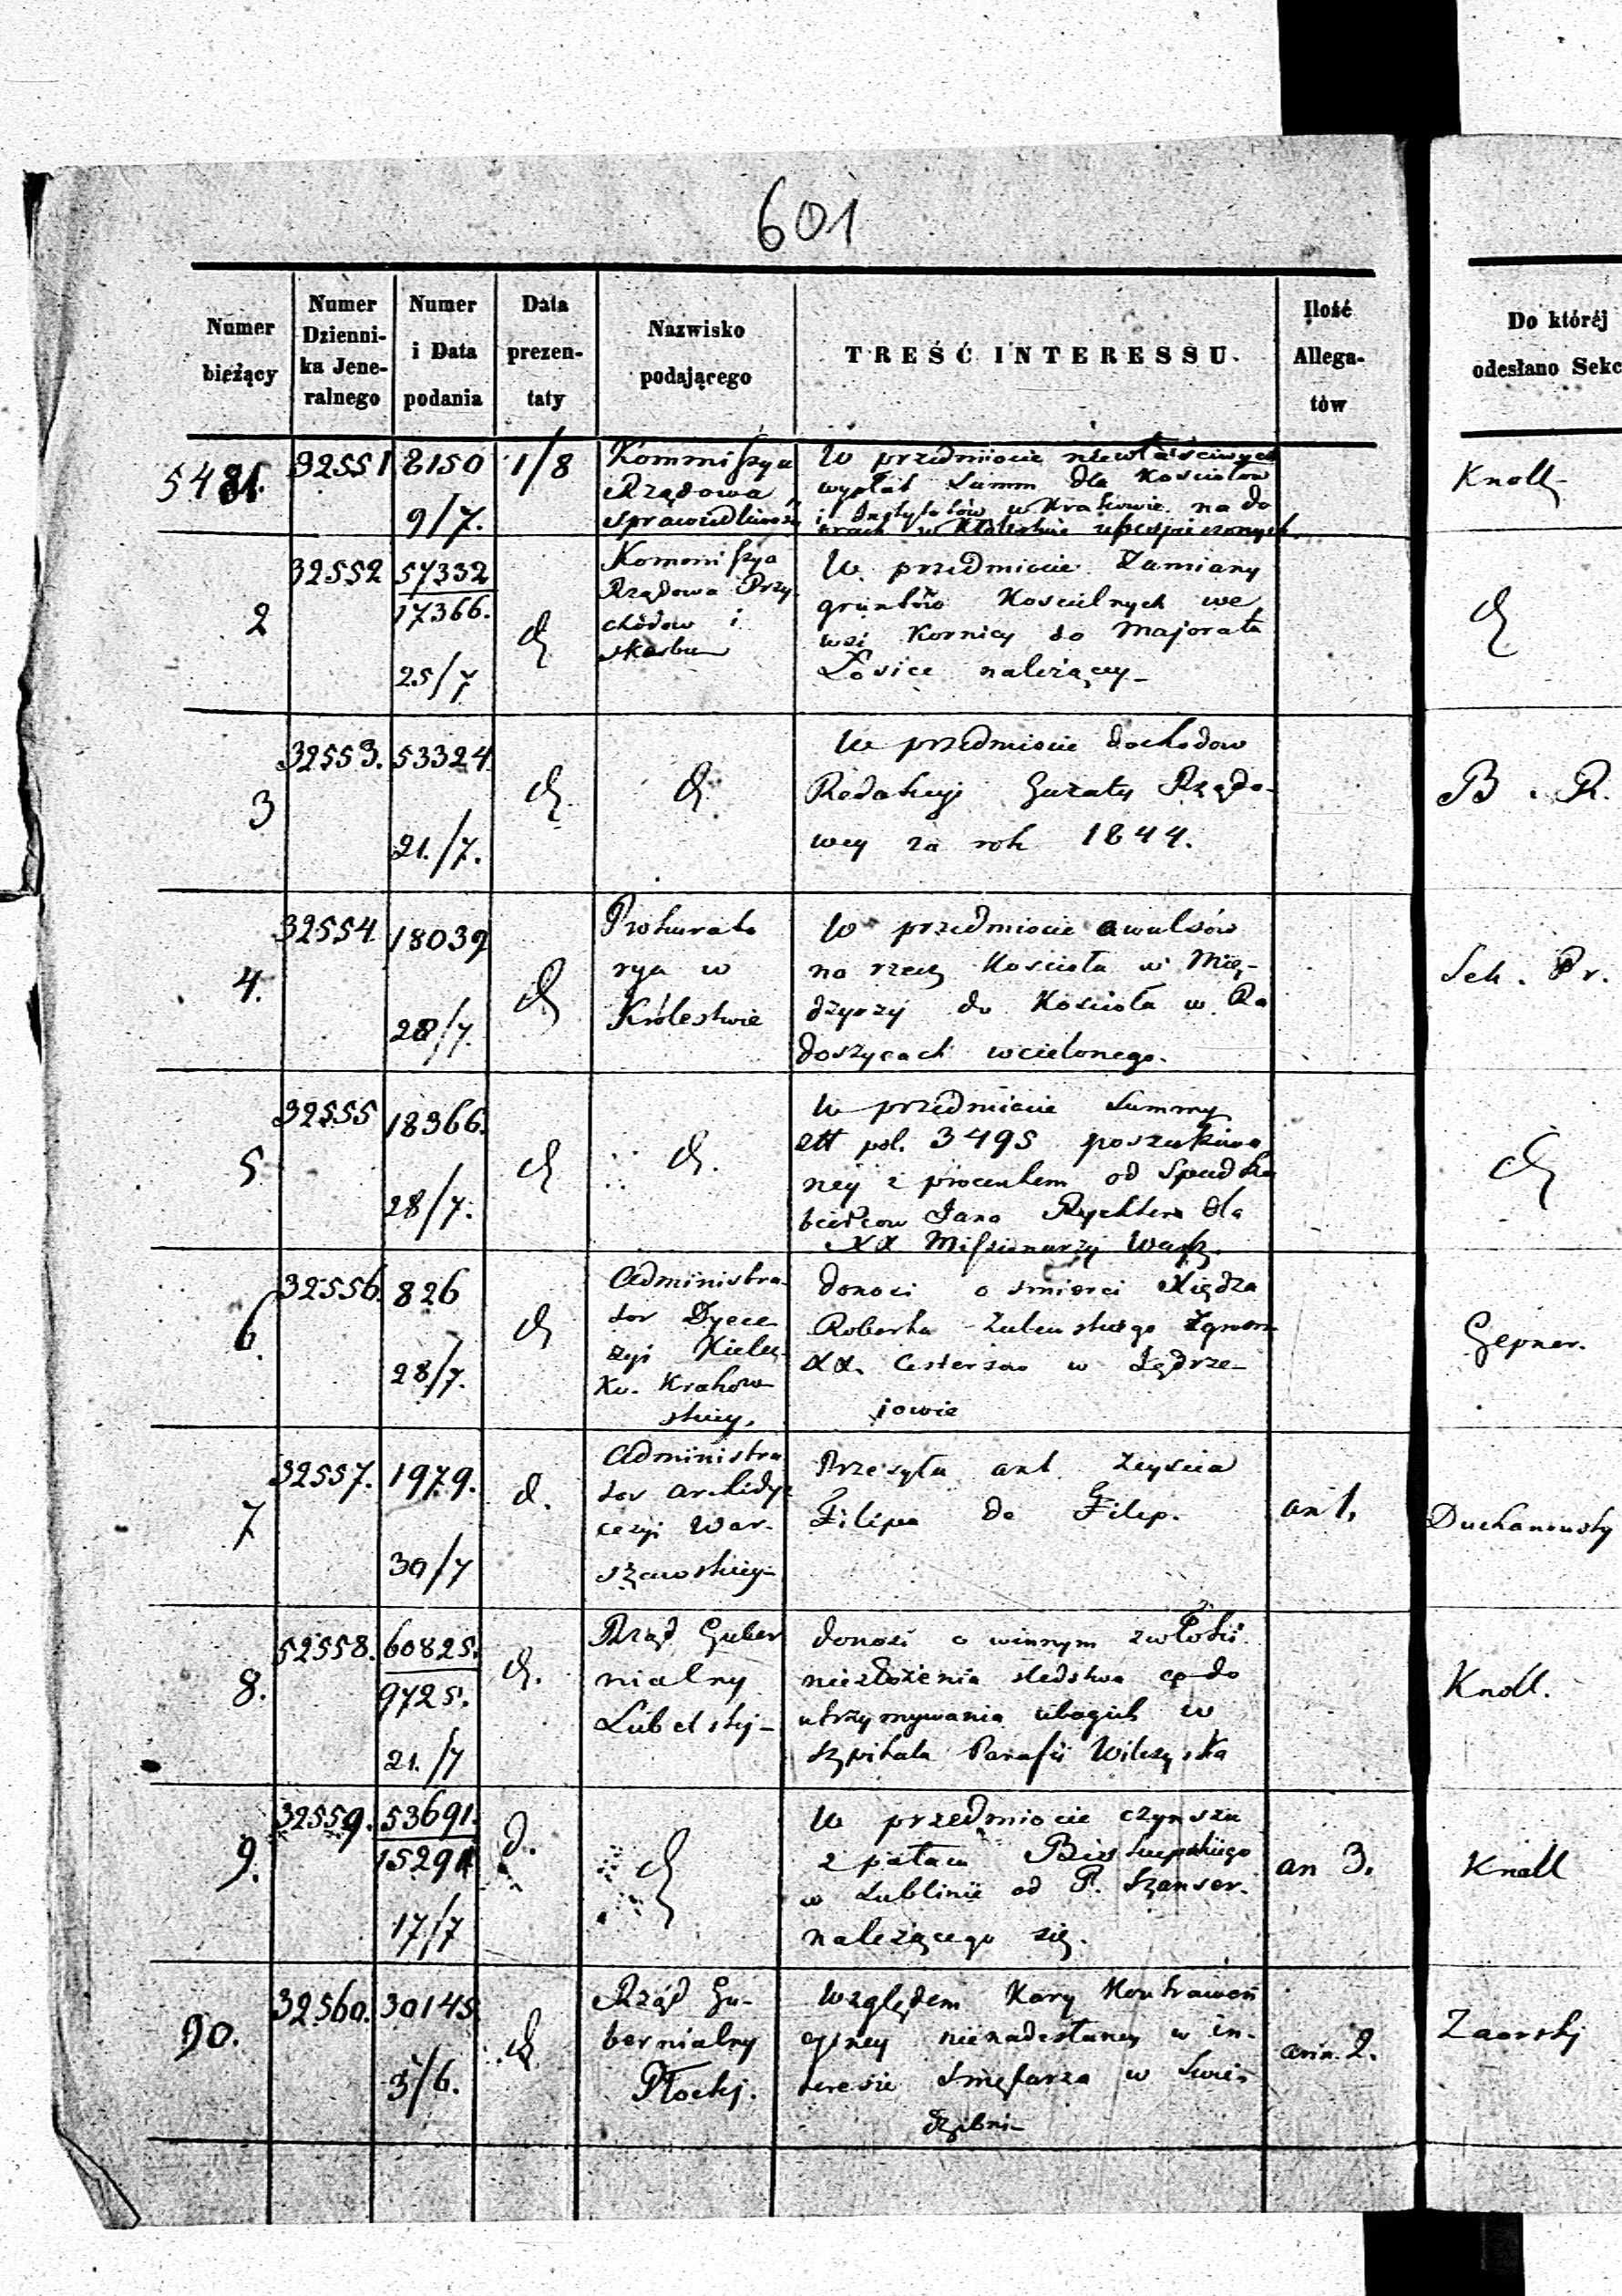 601
Numer bieżący
Numer Dzienni-ka Jene-ralnego
Numer i Data podania
Data prezen-taty
Nazwisko podającego
TREŚĆ INTERESSU.
Ilość Allega-tów
Do któréj odesłano Sekc
5481. 32551 8150 9/7. 1/8
Kommissya
Rządowa
Sprawiedliwości
W przedmiocie niewłaściwych
wypłat Summ dla Kościołów
i Instytutów w Krakowie na do
brach w Królestwie ubezpieczonych.
Knoll
2 32552 57332
17366.
25/7 d
Kommissya
Rządowa Przy
chodow i
skarbu
W przedmiocie Zamiany
gruntów Koscielnych we
wsi Kornicy do Majoratu
Łosice należący
d
3 32553. 53324.
21./7. d d
W przedmiocie dochodow
Redakcyi Gazety Rządo-
wey za rok 1844.
B. R.
4. 32554. 18039
28/7. d
Prokurato
rya w
Królestwie
W przedmiocie awulsów
na rzecz Kościoła w Mię-
dzyrzy do Kościoła w Ra
doszycach wcielonego.
Sek. Pr.
5. 32555 18366.
28/7. d d.
W przedmiocie Summy
pol. 3495 poszukiwa
ney z procentem od Spadko
biercow Jana Rychtera dla
XX Missionarzy Warsz.
d
6. 32556. 826
28/7. d
Administra-
tor Dyece
zyi Kielec
Ko. Krakow
skiey.
donosi o smierci Xiędza
Roberta
XX. Cystersow w Jędrze-
jowie
Gepner.
7 32557. 1979.
30/7 d.
Administra
tor Archidye
cezyi War-
szawskiey
Przesyła akt Zeyscia
Filipa de Filip.
an 1.
Duchanowsky
8. 52558. 60825.
9725.
21./7 d.
Rząd Guber
nialny
Lubelskj
donosi o winnym zwłoki
niezłożenia sledstwa co do
utrzymywania ubogich w
szpitalu Parafii
Knoll.
9. 32559. 53691.
15291
17/7 d. d
W przedmiocie czynszu
z pałacu Biskupskiego
w Lublinie od P. Szanser.
należącego się.
an 3.
Knoll
90. 32560. 30145
3/6. d
Rząd Gu-
bernialny
Płockj.
Względem Kary Kontrawen
cyiney nienadesłaney w in-
teresie Smętarza w
ann. 2.
Zaorskj